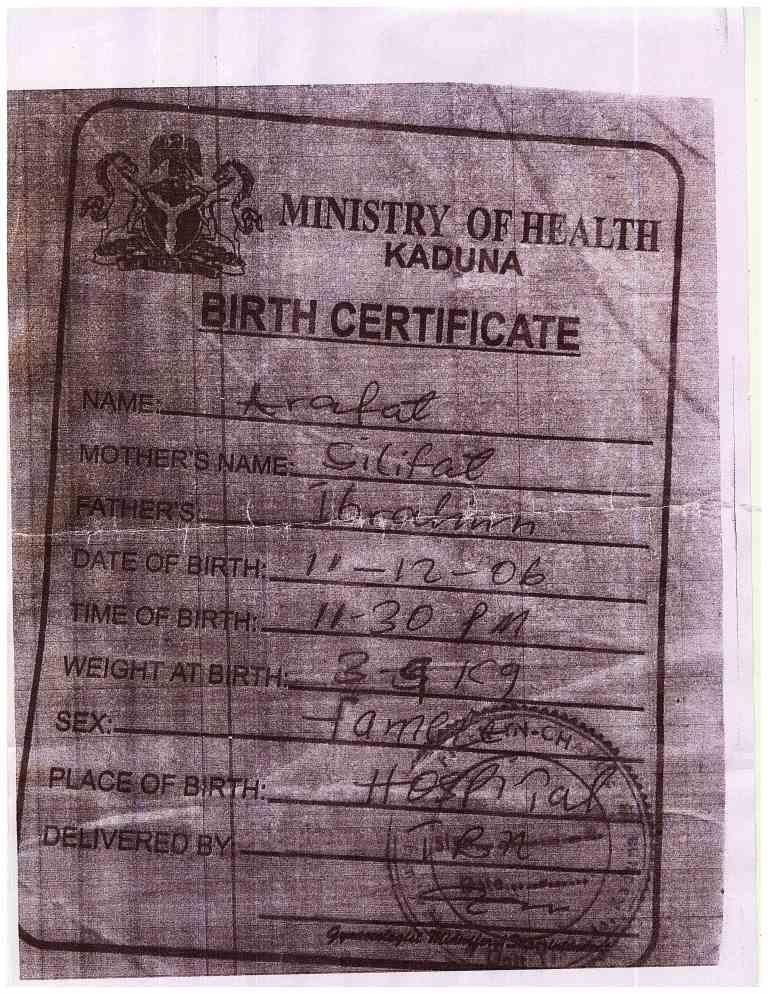 MINISTRY OF HEALTH
KADUNA
BIRTH CERTIFICATE
NAME: Arafat
MOTHER'S NAME: Silifat
FATHER'S: Ibrahim
DATE OF BIRTH: 11-12-06
TIME OF BIRTH: 11-30 PM
WEIGHT AT BIRTH: Kg
SEX: Famel
IN-CH
PLACE OF BIRTH: Hospital
DELIVERED BY